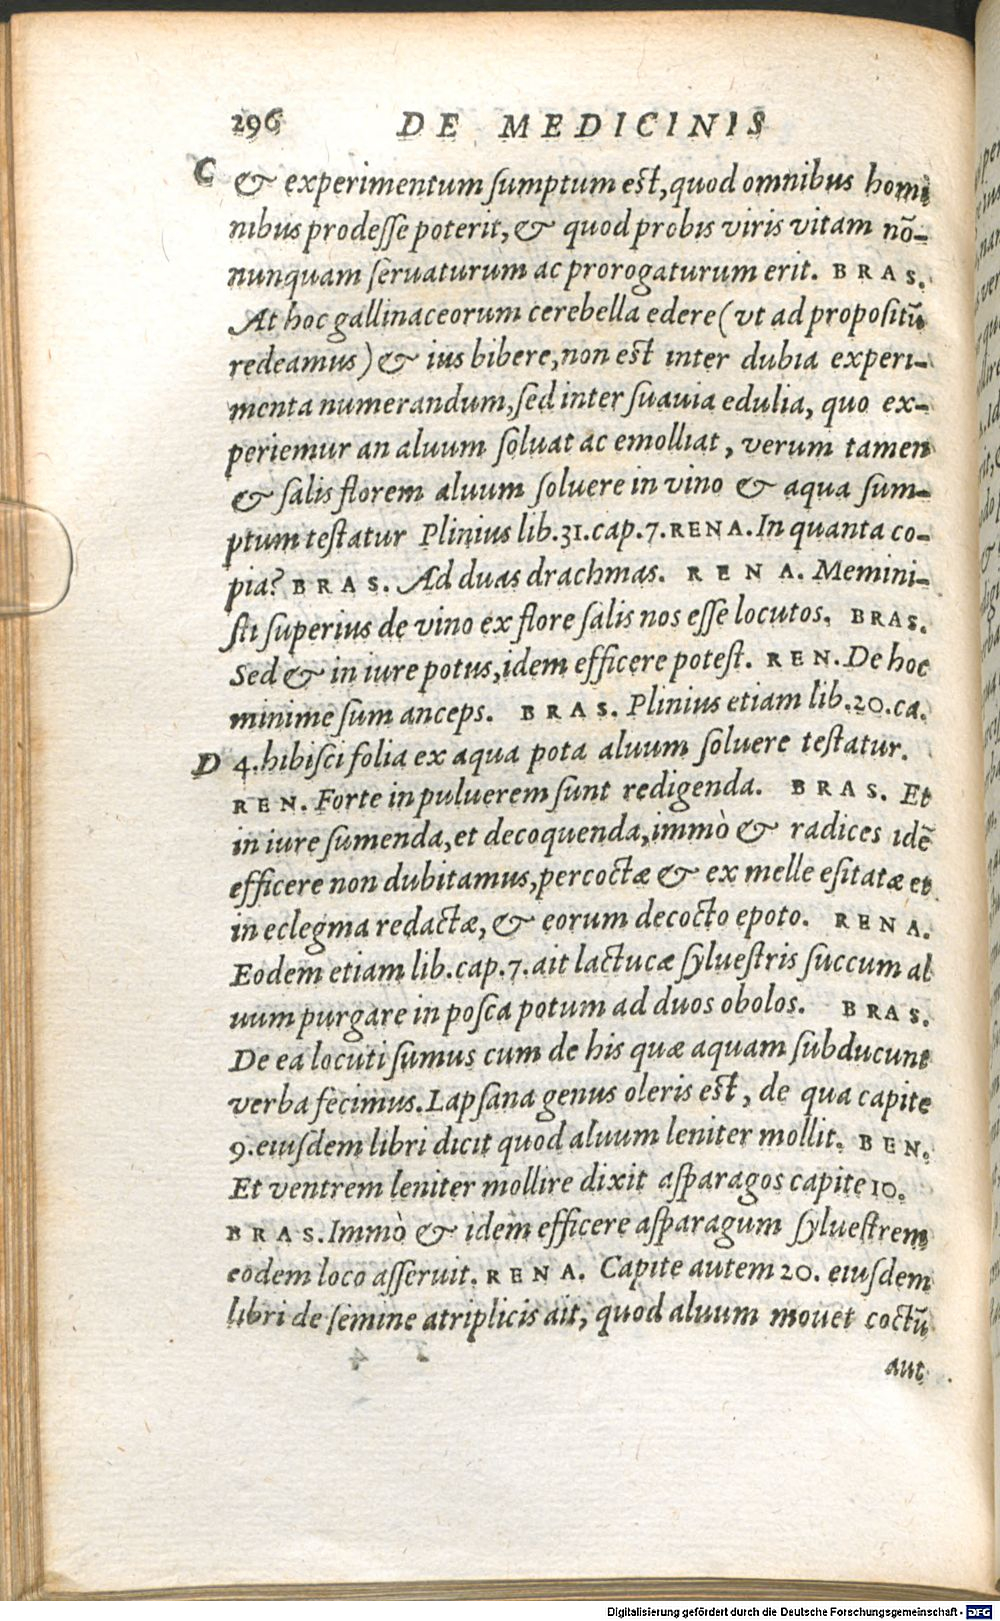 296 DE MEDICINIS
C & experimentum sumptum est, quod omnibus homi
nibus prodesse poterit, & quod probis viris vitam nō-
nunquam seruaturum ac prorogaturum erit. BRAS.
At hoc gallinaceorum cerebella edere (vt ad propositū
redeamus) & ius bibere, non est inter dubia experi-
menta numerandum, sed inter suauia edulia, quo ex-
periemur an aluum soluat ac emolliat, verum tamen
& salis florem aluum soluere in vino & aqua sum-
ptum testatur Plinius lib.31.cap.7. RENA. In quanta co-
pia? BRAS. Ad duas drachmas. RENA. Memini-
sti superius de vino ex flore salis nos esse locutos. BRAS.
Sed & in iure potus, idem efficere potest. REN. De hoc
minime sum anceps. BRAS. Plinius etiam lib.20.ca.
D 4. hibisci folia ex aqua pota aluum soluere testatur.
REN. Forte in puluerem sunt redigenda. BRAS. Et
in iure sumenda, et decoquenda, immò & radices idē
efficere non dubitamus, percoctæ & ex melle esitatæ et
in eclegma redactæ, & eorum decocto epoto. RENA.
Eodem etiam lib.cap.7. ait lactucæ syluestris succum al
uum purgare in posca potum ad duos obolos. BRAS.
De ea locuti sumus cum de his quæ aquam subducunt
verba fecimus. Lapsana genus oleris est, de qua capite
9. eiusdem libri dicit quod aluum leniter mollit. BEN.
Et ventrem leniter mollire dixit asparagos capite 10.
BRAS. Immò & idem efficere asparagum syluestrem
eodem loco asseruit. RENA. Capite autem 20. eiusdem
libri de semine atriplicis ait, quod aluum mouet coctū
aut
Digitalisierung gefördert durch die Deutsche Forschungsgemeinschaft - DFG